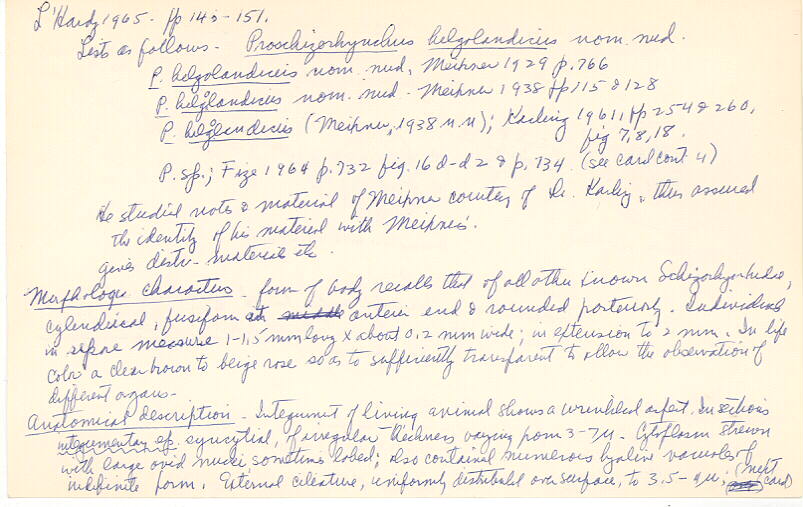 L'Hardy 1965. pp 145-151.
Lists as follows - Proschizorhynchus helgolandicus nom. nud.
P. helgolandicus nom. nud, Meixner 1929 p. 766
P. helgolandicus nom. nud. Meixner 1938 pp 115 & 128
P. helgolandicus (Meixner, 1938 n.n); Karling 1961, pp 254 & 260,
fig 7, 8, 18.
P. sp.; Fize 1964 p. 732 fig. 16 d-d2 & p. 734. (see card cont. 4)
He studied notes & material of Meixner courtesy of Dr. Karling, thus assured
the identity of his material with Meixner's.
gives distr- materials etc.
Morphologic characters - form of body recalls that of all other known Schizorhynchidae,
cylindrical, fusiform at middle anterior end & rounded posteriorly. Individuals
in repose measure 1-1,5 mm long x about 0.2 mm wide; in extension to 2 mm. In life
color a clear brown to beige rose so as to sufficiently transparent to allow the observation of
different organs -
Anatomical description - Integument of living animal shows a wrinkled aspect. In sections
integumentary ep. syncytial, of irregular thickness varying from 3-7µ. Cytoplasm strewn
with large ovid nuclei sometimes lobed; also contained numerous hyaline vacuoles of
indefinite form. External ciliature, uniformly distributed over surface, to 3.5-4µ; (next
card)